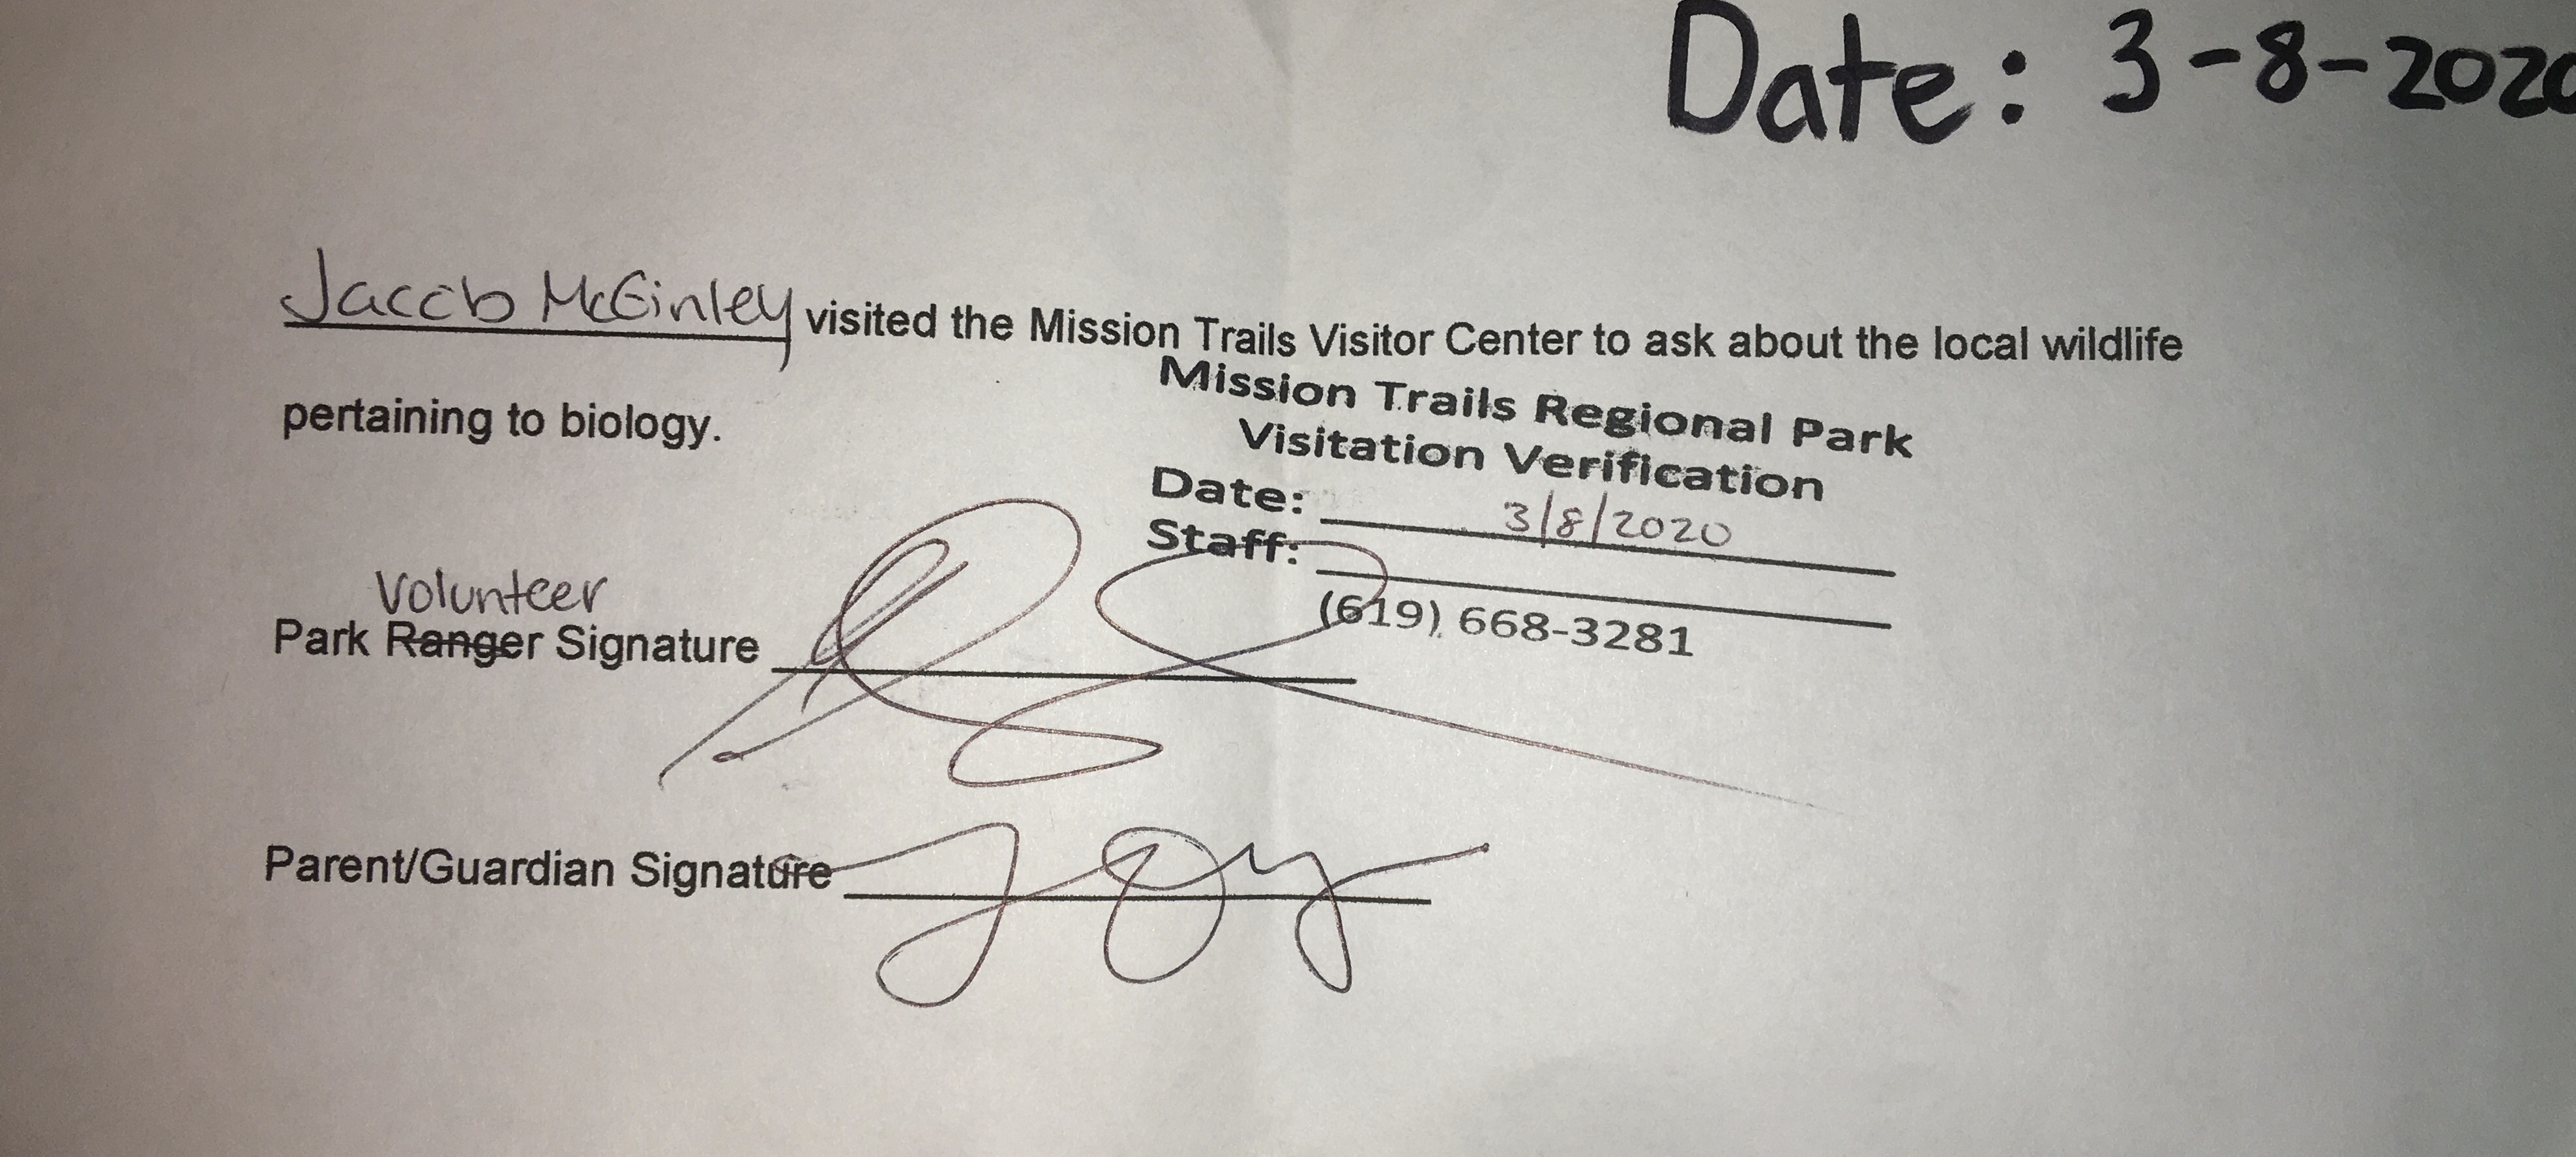 Date: 3-8-2020
Jacob McGinley visited the Mission Trails Visitor Center to ask about the local wildlife
pertaining to biology.
Mission Trails Regional Park
Visitation Verification
Date: 3/8/2020
Staff:
(619) 668-3281
Volunteer
Park Ranger Signature
Parent/Guardian Signature